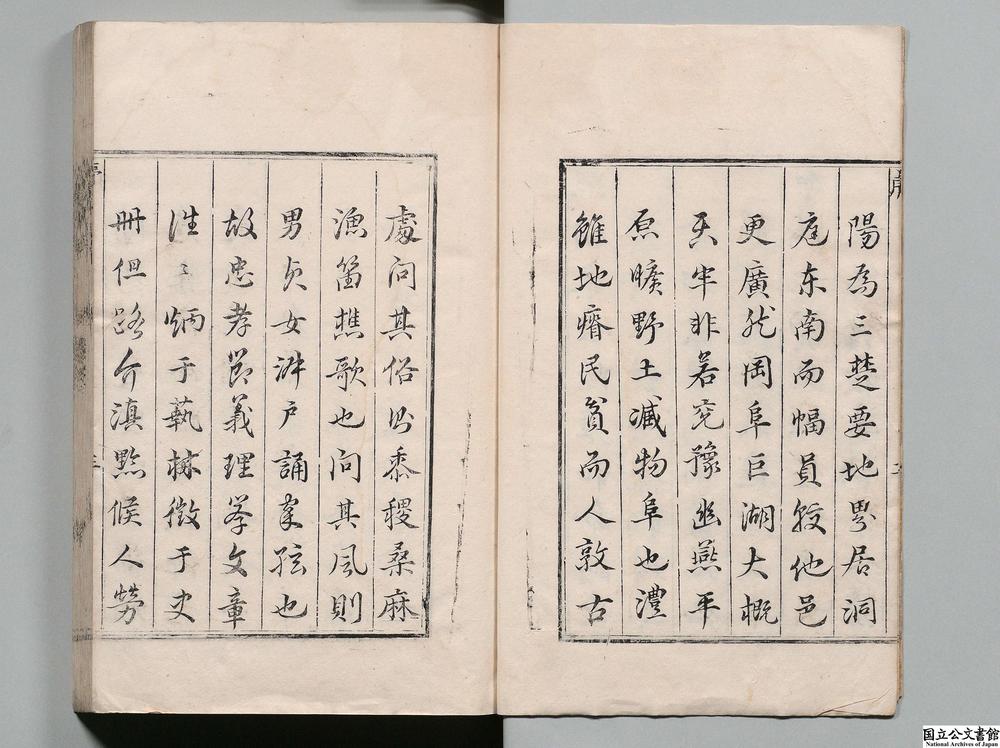 陽為三楚要地界居洞
庭东南而幅員較他邑
更廣然岡阜巨湖大概
天牢非若兖豫幽燕平
原曠野土減物阜也澧
雖地瘠民貧而人敦古
處问其俗則黍稷桑麻
漁笛樵歌也问其風則
男貞女淑户誦家弦也
故忠孝節義理学文章
往々炳于藝林徵于史
冊但路介滇黔候人勞
国立公文書館
National Archives of Japan